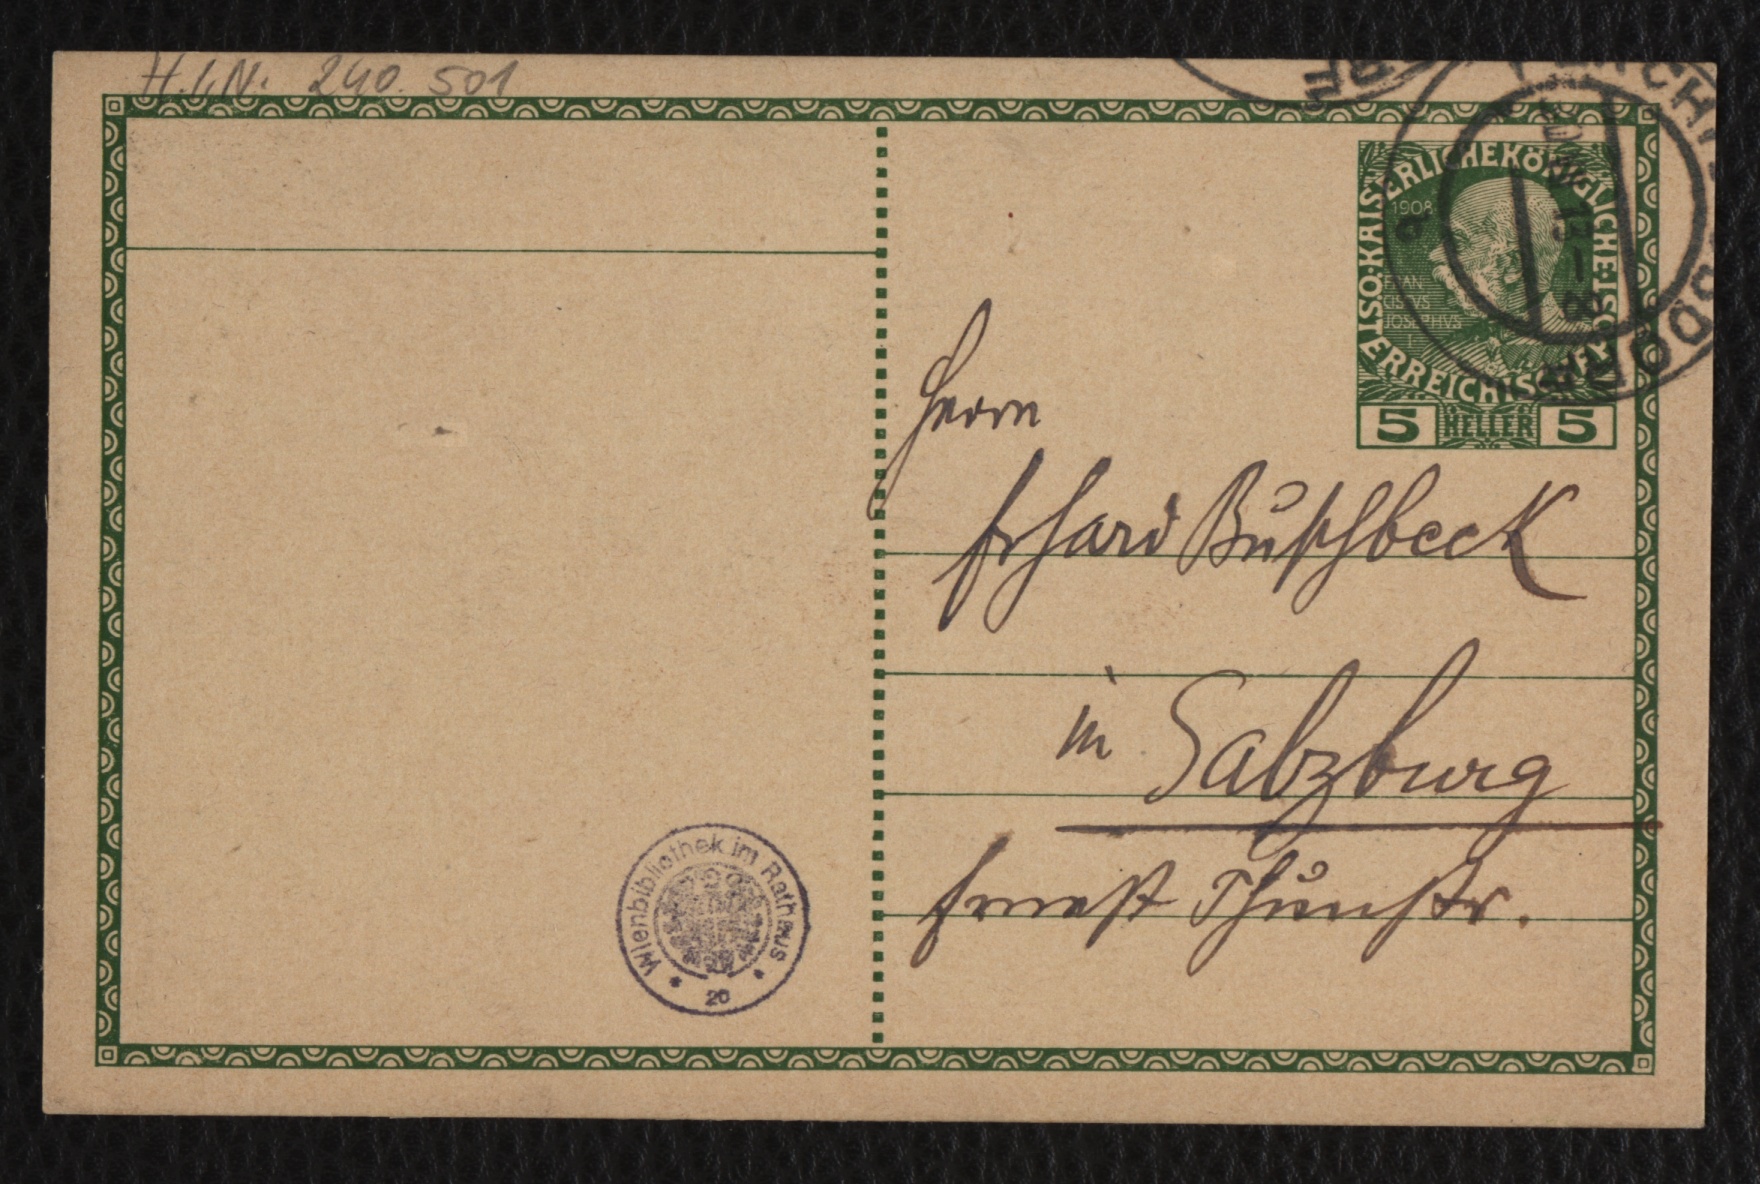 H.I.N. 240.501
KAISERLICHE KÖNIGLICHE ÖSTERREICHISCHE
1908
FRAN
CISCVS
JOSEPHVS
I
5 HELLER 5
Herrn
Erhard Buschbeck
in Salzburg
Ernest Thunstr.
Wienbibliothek im Rathaus
* 20 *